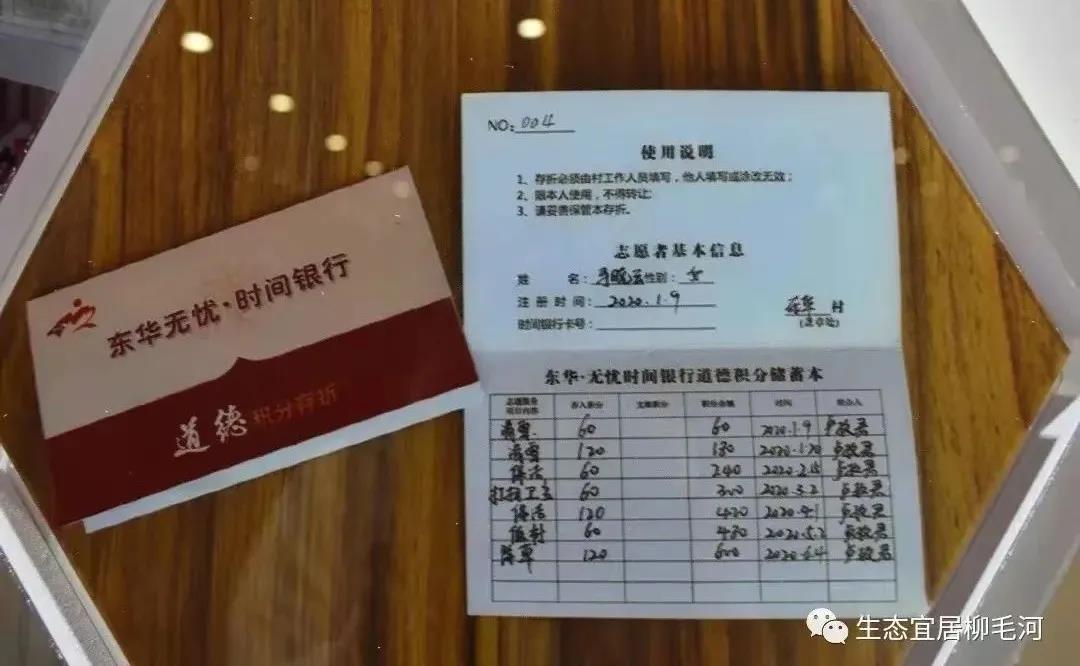 东华无忧·时间银行
道德 积分存折
NO:004
使用说明
1、存折必须由村工作人员填写，他人填写或涂改无效；
2、限本人使用，不得转让;
3、请妥善保管本存折。
志愿者基本信息
姓 名： 性别：女
注册时间：2020.1.9
时间银行卡号：
东华 村
(盖章处)
东华·无忧时间银行道德积分储蓄本
志愿服务项目内容 存入积分 支取积分 积分余额 时间 经办人
清雪 60 60 2020.1.9
清雪 120 180 2020.1.20
保洁 60 240 2020.2.15
打扫卫生 60 300 2020.3.2
保洁 120 420 2020.4.1
60 480 2020.5.2
除草 120 600 2020.6.4
生态宜居柳毛河